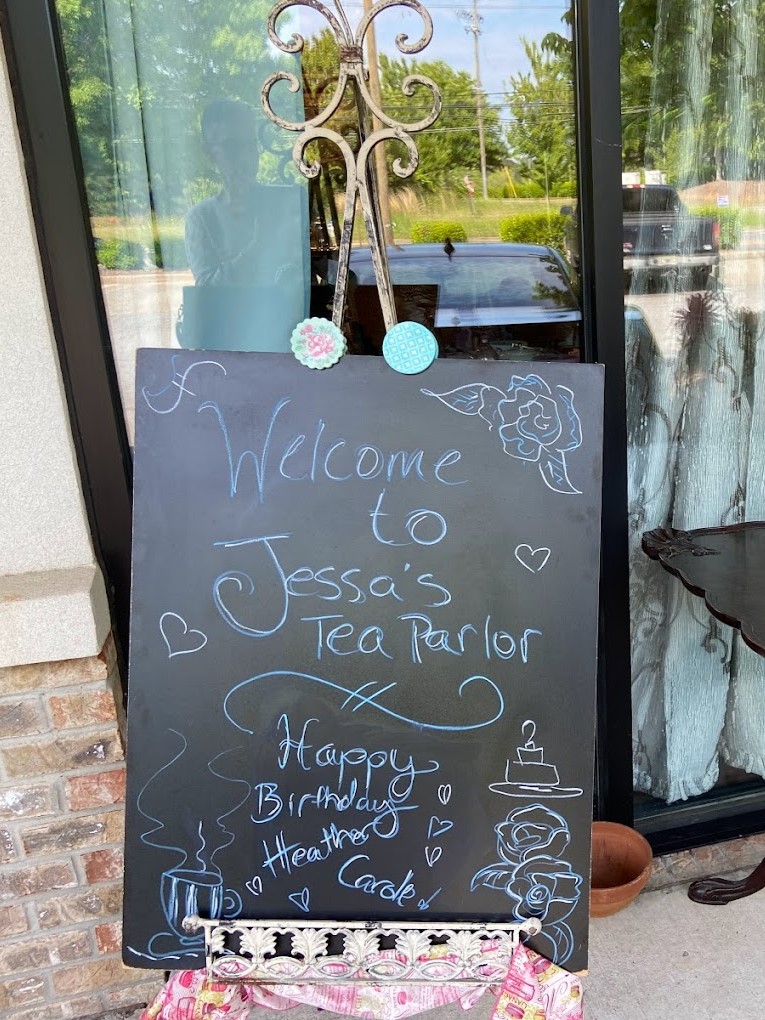 Welcome
to
Jessa's
Tea Parlor
Happy
Birthday
Heather
Carole!